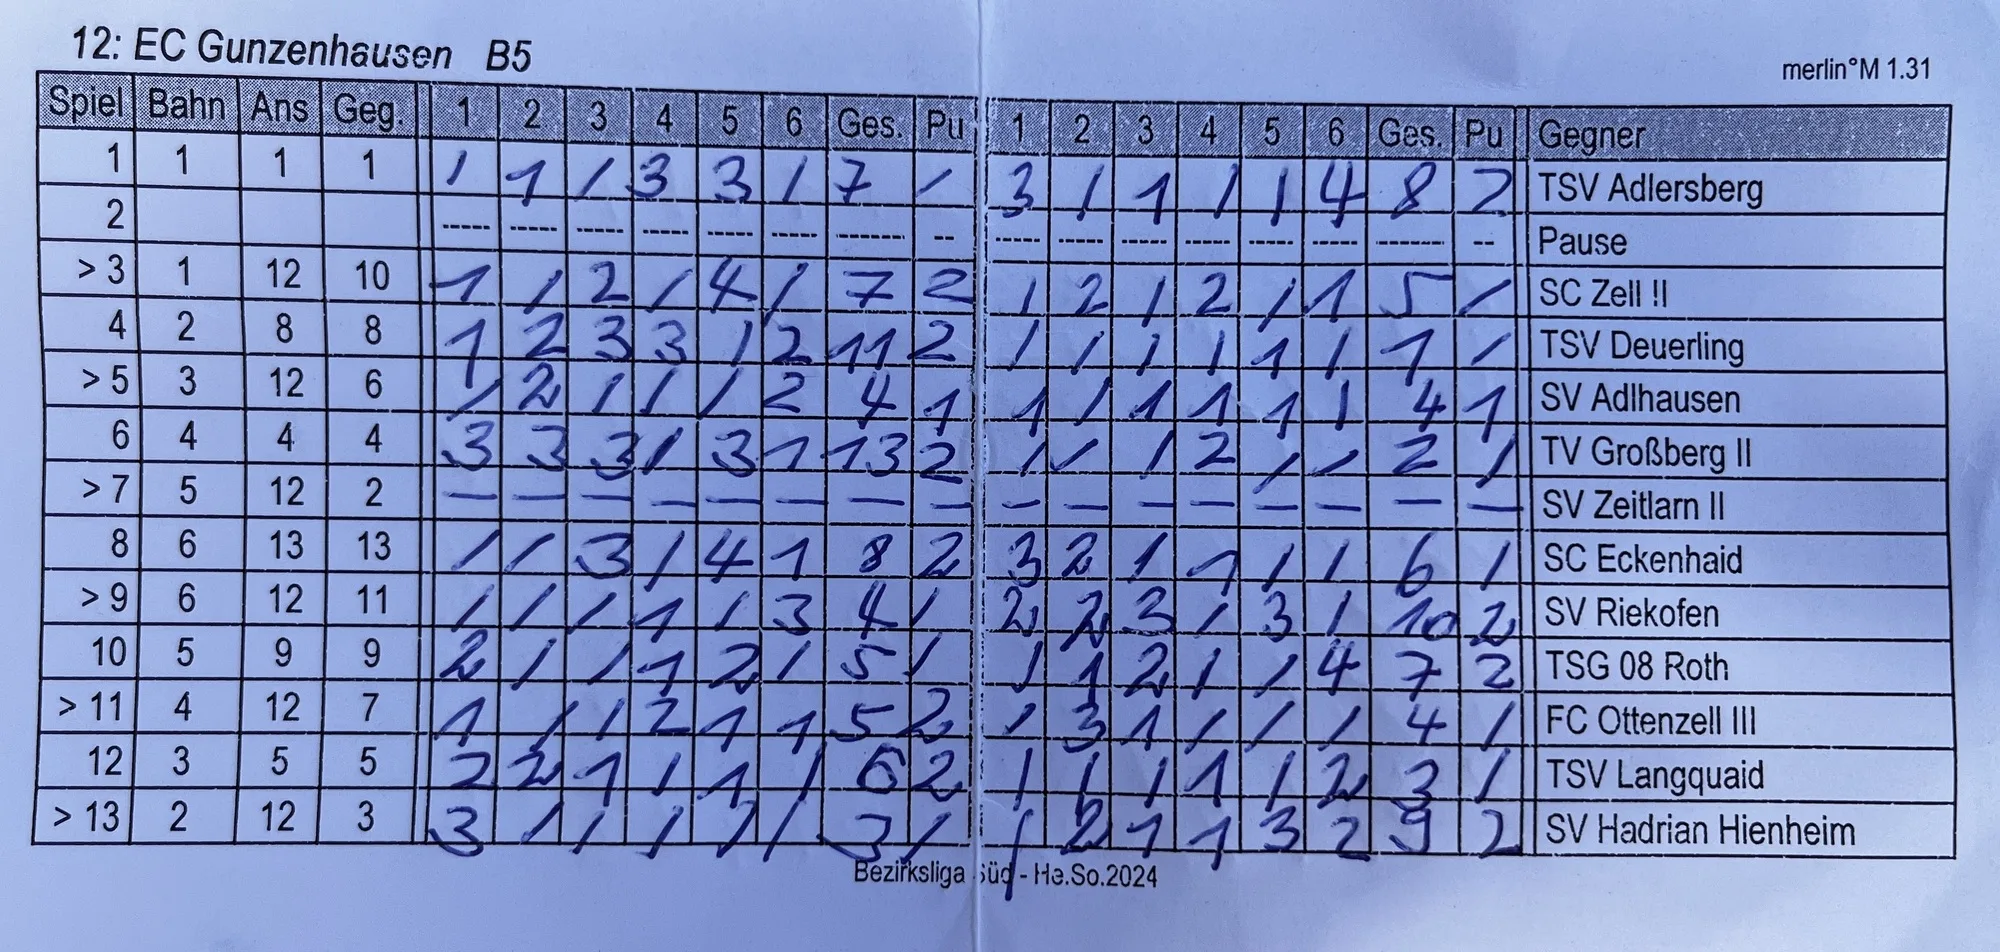 12: EC Gunzenhausen B5
merlin°M 1.31
Spiel Bahn Ans Geg. 1 2 3 4 5 6 Ges. Pu 1 2 3 4 5 6 Ges. Pu Gegner
1 1 1 1 / 1 / 3 3 / 7 / 3 / 1 / / 4 8 2 TSV Adlersberg
2 ----- ----- ----- ----- ----- ----- ------- -- ----- ----- ----- ----- ----- ----- ------- -- Pause
> 3 1 12 10 1 / 2 / 4 / 7 2 / 2 / 2 / 1 5 / SC Zell II
4 2 8 8 1 2 3 3 / 2 11 2 / / / / 1 / 1 / TSV Deuerling
> 5 3 12 6 / 2 / / / 2 4 1 1 / 1 1 1 / 4 1 SV Adlhausen
6 4 4 4 3 3 3 / 3 1 13 2 / / / 2 / / 2 / TV Großberg II
> 7 5 12 2 — — — — — — — — — — — — — — — — SV Zeitlarn II
8 6 13 13 / / 3 / 4 1 8 2 3 2 1 1 / / 6 / SC Eckenhaid
> 9 6 12 11 / / / 1 / 3 4 / 2 2 3 / 3 / 10 2 SV Riekofen
10 5 9 9 2 / / 1 2 / 5 / / 1 2 / / 4 7 2 TSG 08 Roth
> 11 4 12 7 1 / / 2 1 1 5 2 / 3 1 / / / 4 / FC Ottenzell III
12 3 5 5 2 2 1 / 1 / 6 2 / / / 1 / 2 3 / TSV Langquaid
> 13 2 12 3 3 1 / / 1 / 3 / / 2 1 1 3 2 9 2 SV Hadrian Hienheim
Bezirksliga Süd - He.So.2024